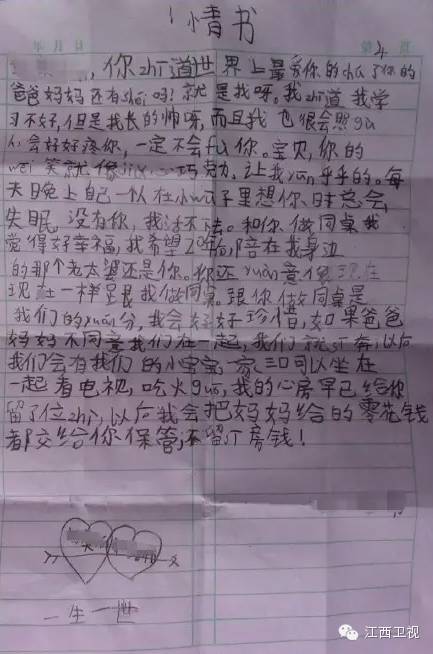 情书
年 月 日
第4页
你zhī道世界上最爱你的chú了你的
爸爸妈妈还有shéi吗?就是我呀。我zhī道我学
习不好,但是我长的帅呀,而且我也很会照gù
人,会好好疼你,一定不会fù你。宝贝,你的
wēi笑就像 巧克力,让我yūn乎乎的。每
天晚上自己一个人在小wū子里想你、时总会
失眠。没有你,我活不下去。和你做同桌我
觉得好幸福,我希望20年后,陪在我身边
的那个老太婆还是你。你还yuàn意像现在
现在一样 跟我做同桌。跟你做同桌是
我们的yuán分,我会好好珍惜,如果爸爸
妈妈不同意我们在一起,我们就sī奔,以后
我们会有我们的小宝宝,一家三口可以坐在
一起看电视,吃火guō,我的心房早已给你
留了位zhì,以后我会把妈妈给的零花钱
都交给你保管,不留sī房钱!
一生一世
江西卫视